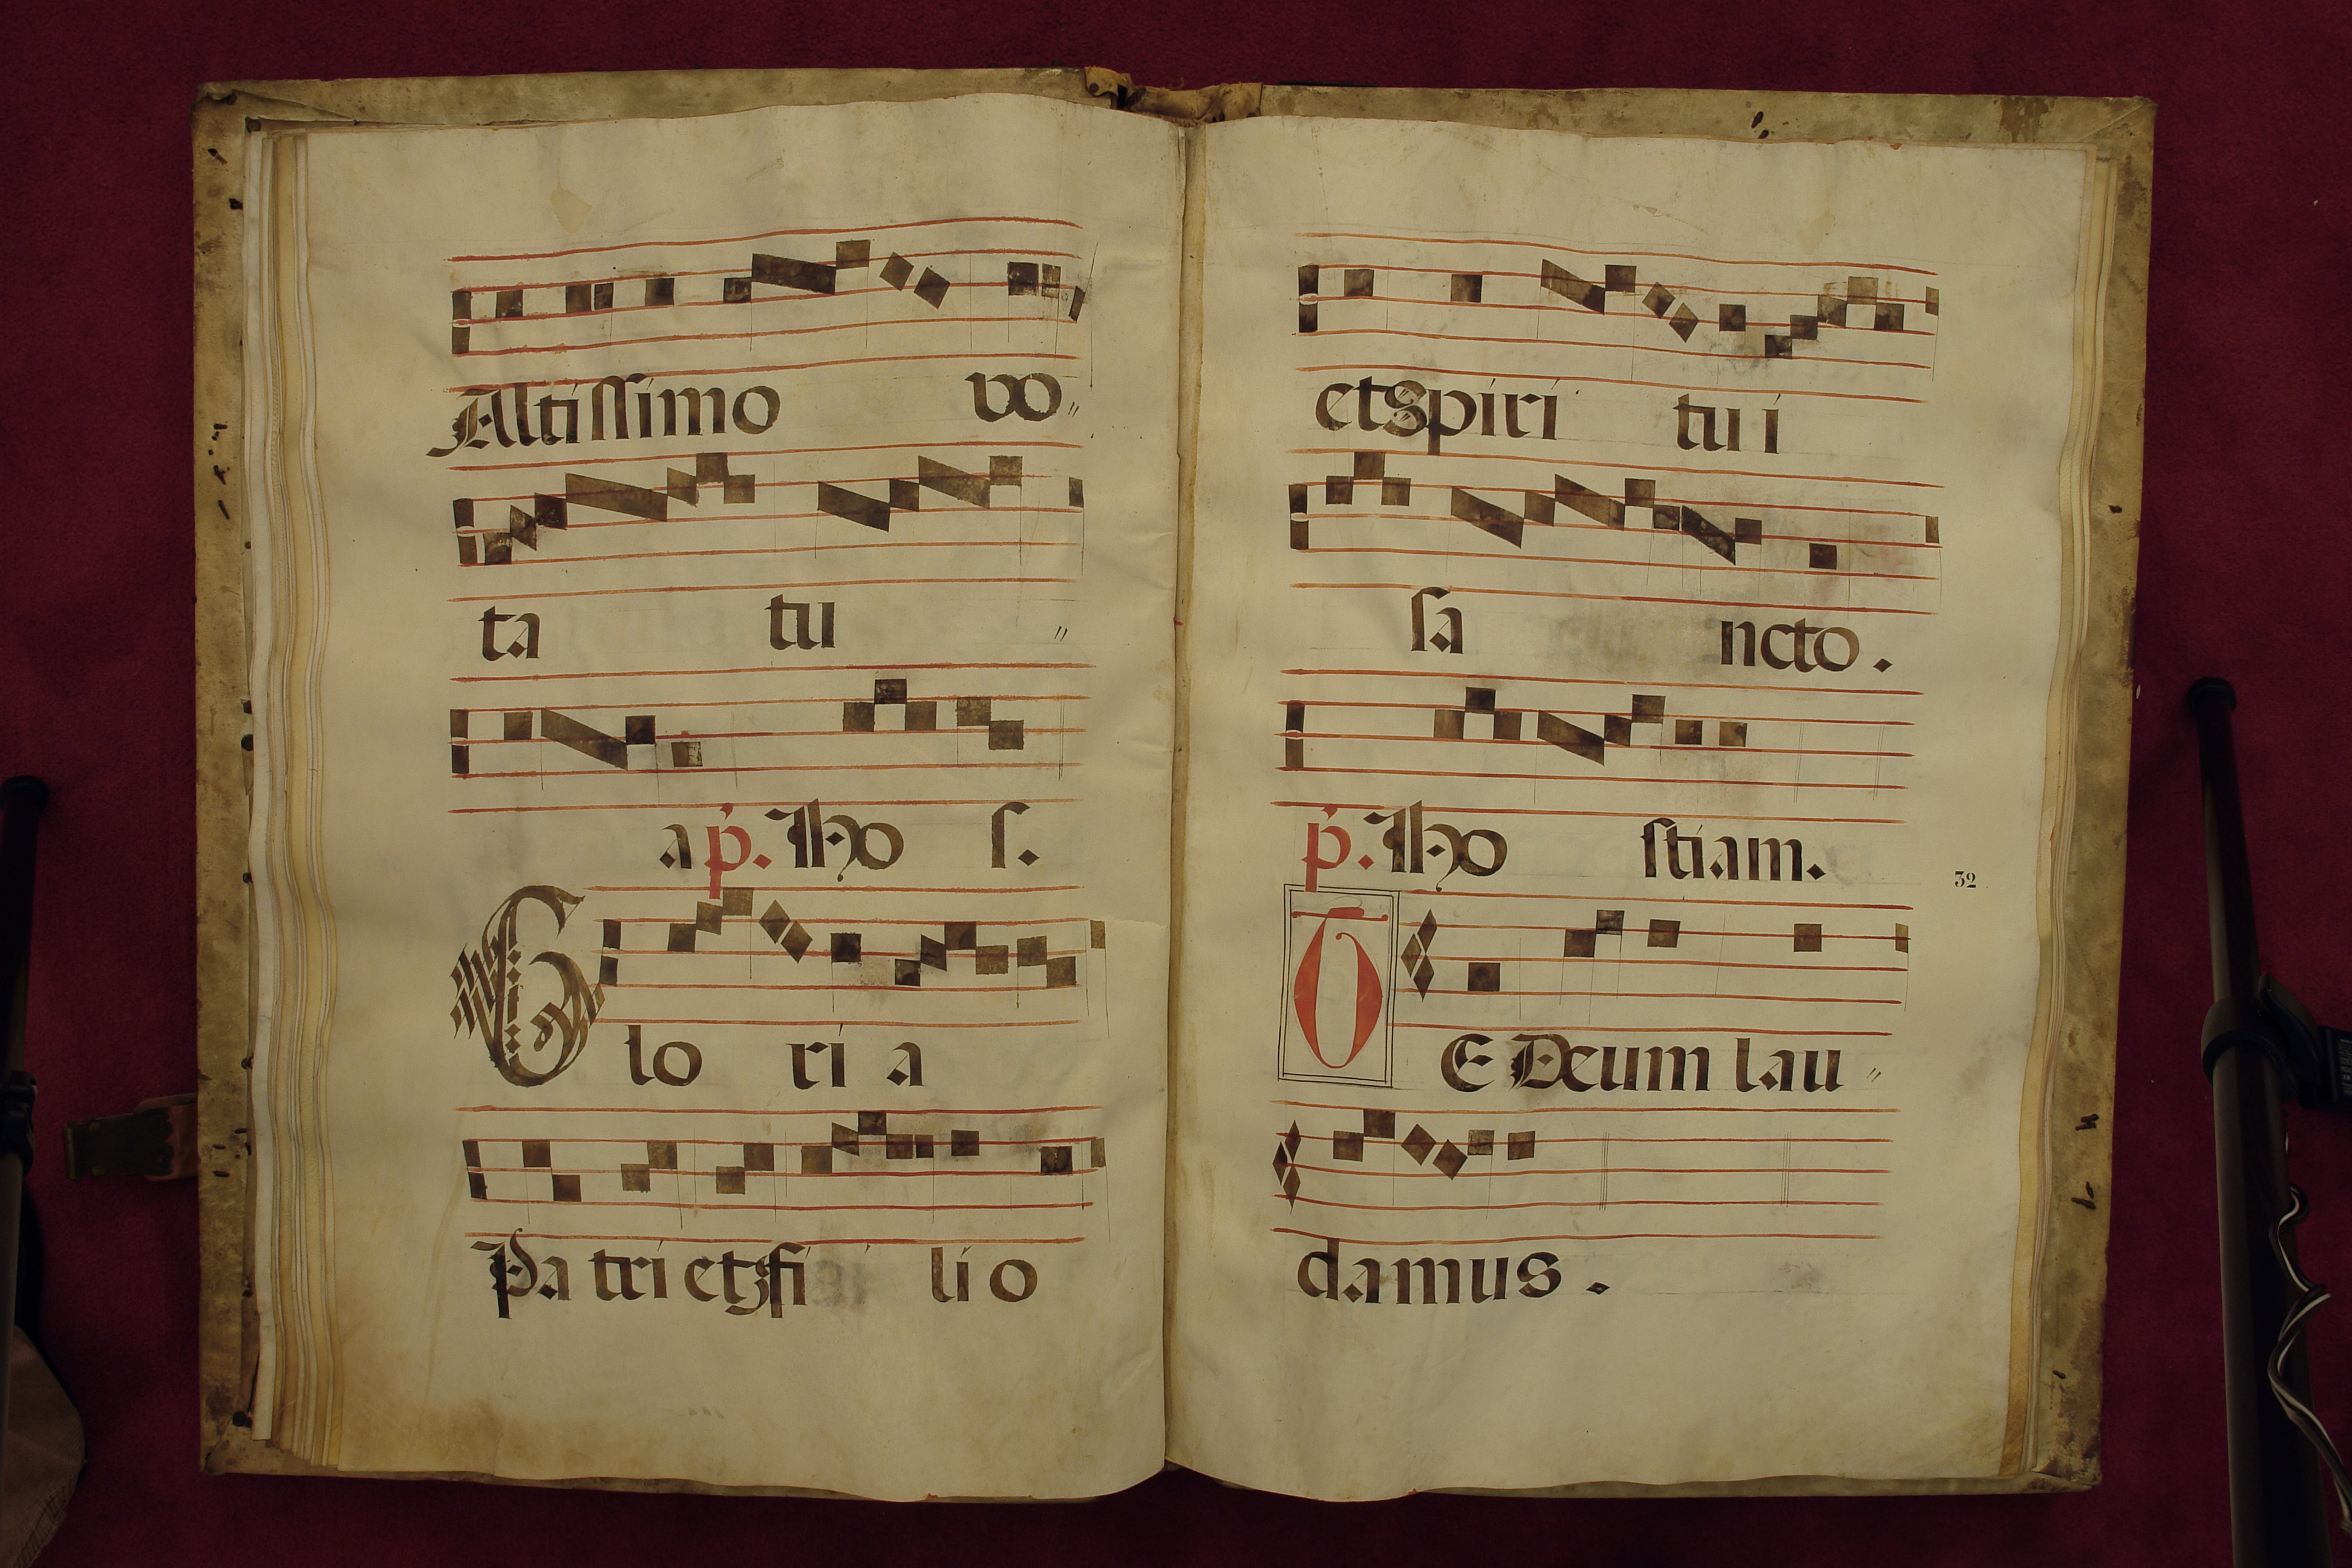 Altissimo vo〃
ta tu 〃
a p̕. Iho s.
Glo ri a
Pa tri et fi li o
et spiri tu i
sa ncto.
p̕. Iho stiam.
32
TE Deum lau〃
damus.